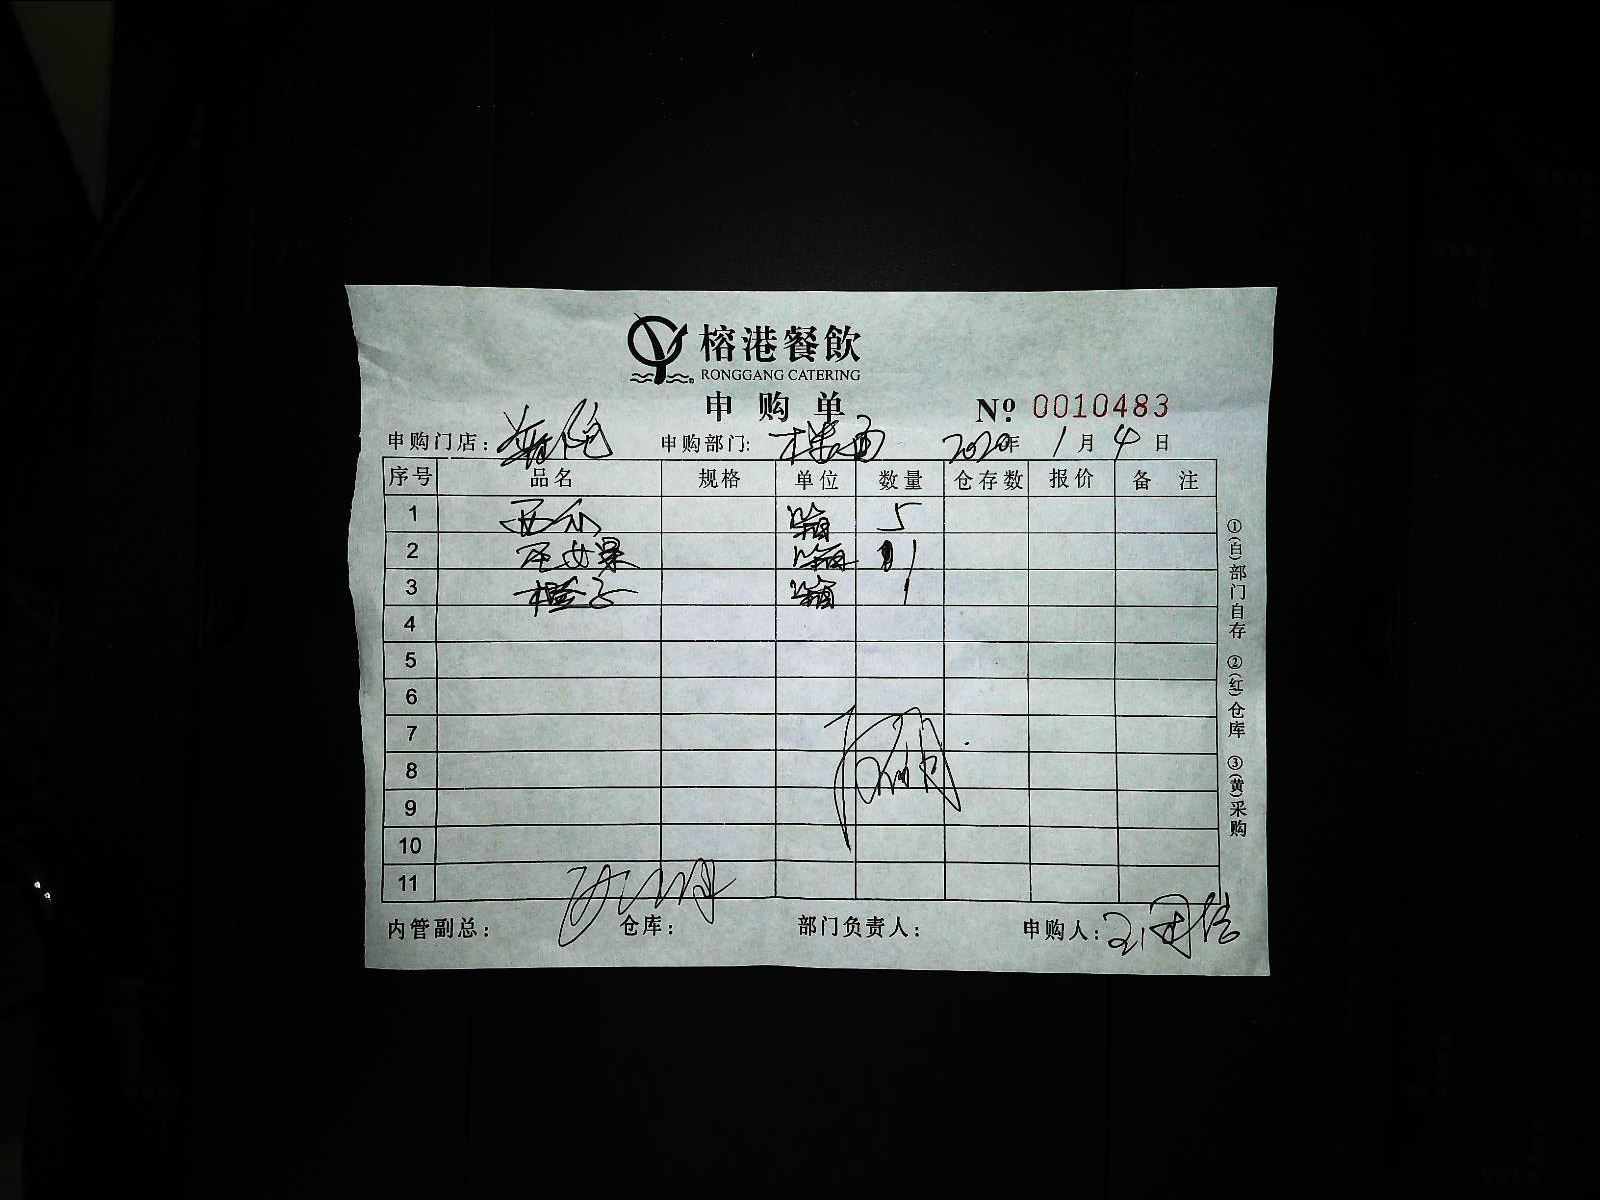 榕港餐飲
RONGGANG CATERING
申购单 Nº 0010483
申购门店: 申购部门: 楼面 2020年 1月 4日
序号 品名 规格 单位 数量 仓存数 报价 备 注
1 西瓜 箱 5
2 圣女果 箱 1
3 橙子 箱 1
4
5
6
7
8
9
10
11
内管副总: 仓库: 部门负责人: 申购人:
①(白)部门自存 ②(红)仓库 ③(黄)采购